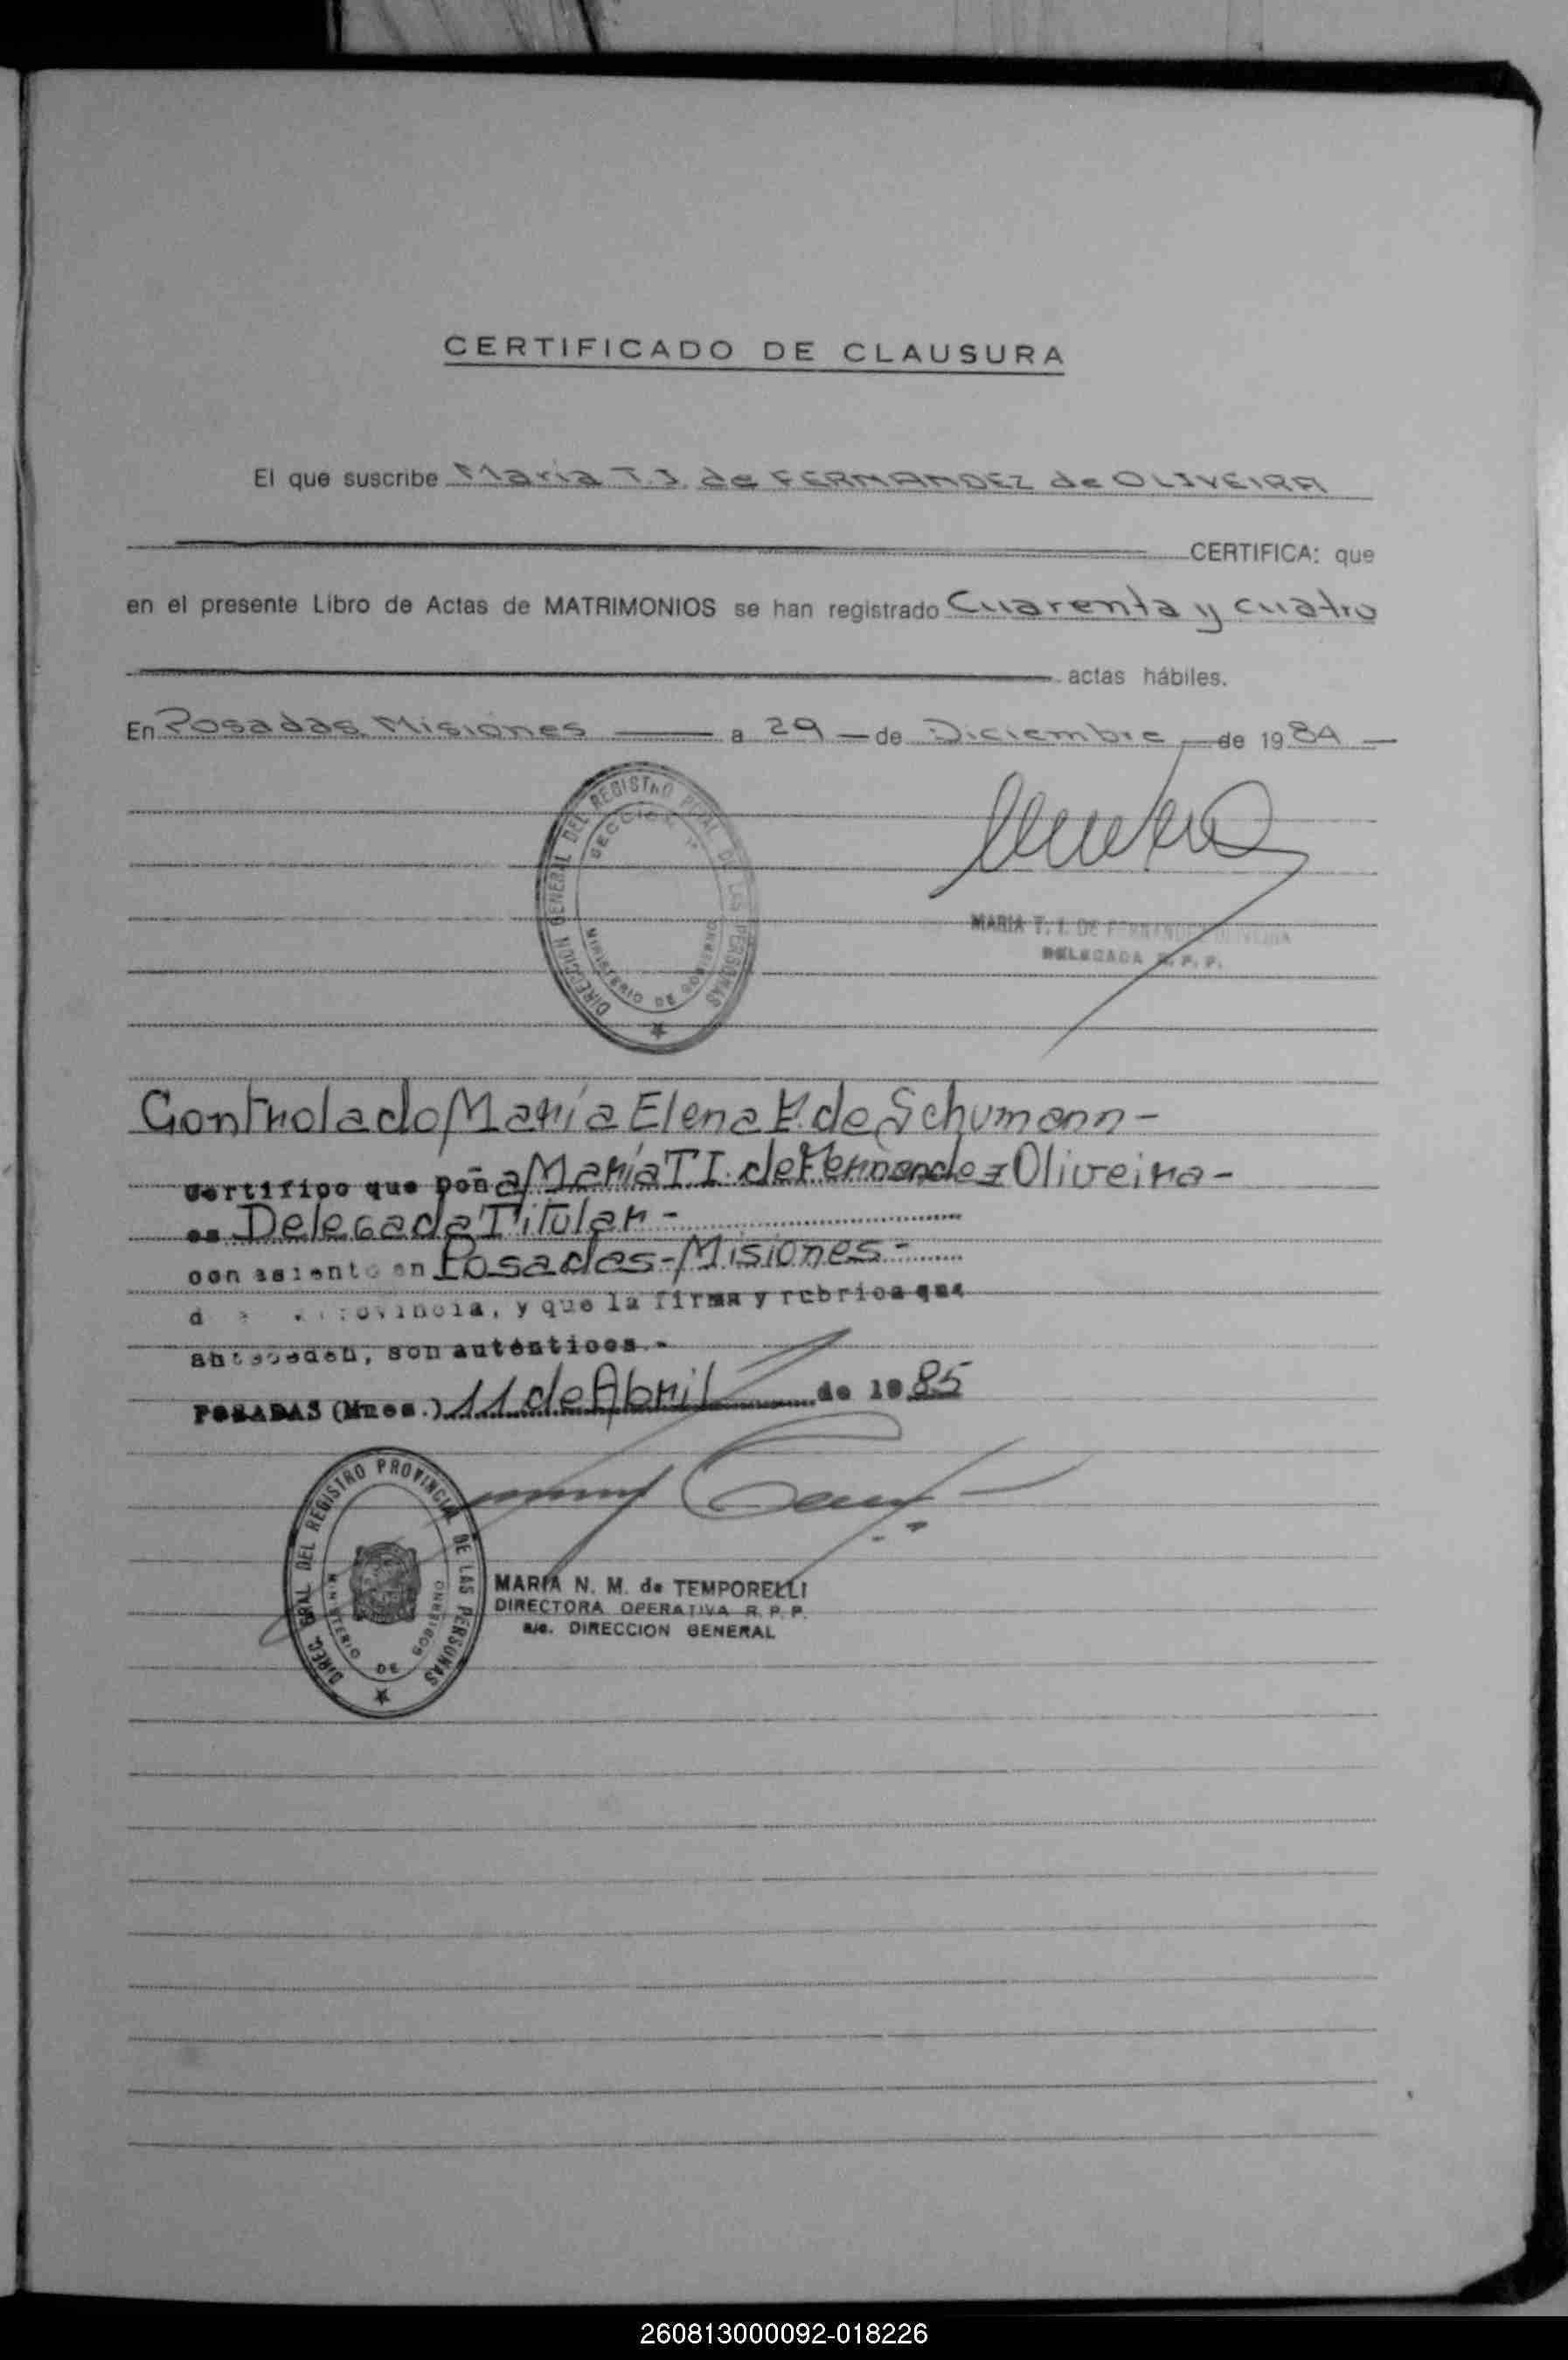 CERTIFICADO DE CLAUSURA
El que suscribe Maria T.I. de FERNANDEZ de OLIVEIRA
CERTIFICA: que
en el presente Libro de Actas de MATRIMONIOS se han registrado Cuarenta y cuatro
actas hábiles.
En Posadas Misiones a 29 de Diciembre de 1984
DIRECCION GENERAL DEL REGISTRO PCIAL DE LAS PERSONAS
SECCION
MINISTERIO DE GOBIERNO
MARIA T. I. DE FERNANDEZ OLIVEIRA
DELEGADA R. P. P.
Controlado María Elena de Schumann-
Certifico que Doña María T I. de Fernandez Oliveira-
es Delegada Titular-
con asiento en Posadas-Misiones-
provincia, y que la firma y rubrica que
anteceden, son auténticos.-
POSADAS (Mnes.) 11 de Abril de 1985
DIREC. GRAL DEL REGISTRO PROVINCIAL DE LAS PERSONAS
MINISTERIO DE GOBIERNO
MARIA N. M. de TEMPORELLI
DIRECTORA OPERATIVA R. P. P.
a/c. DIRECCION GENERAL
260813000092-018226